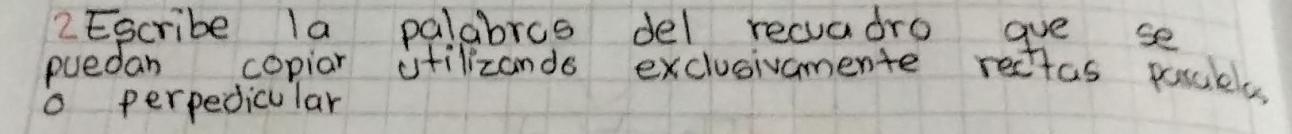 2 Escribe la palabras del recuadro que se
puedan copiar utilizando exclusivamente rectas paralelas
o perpedicular